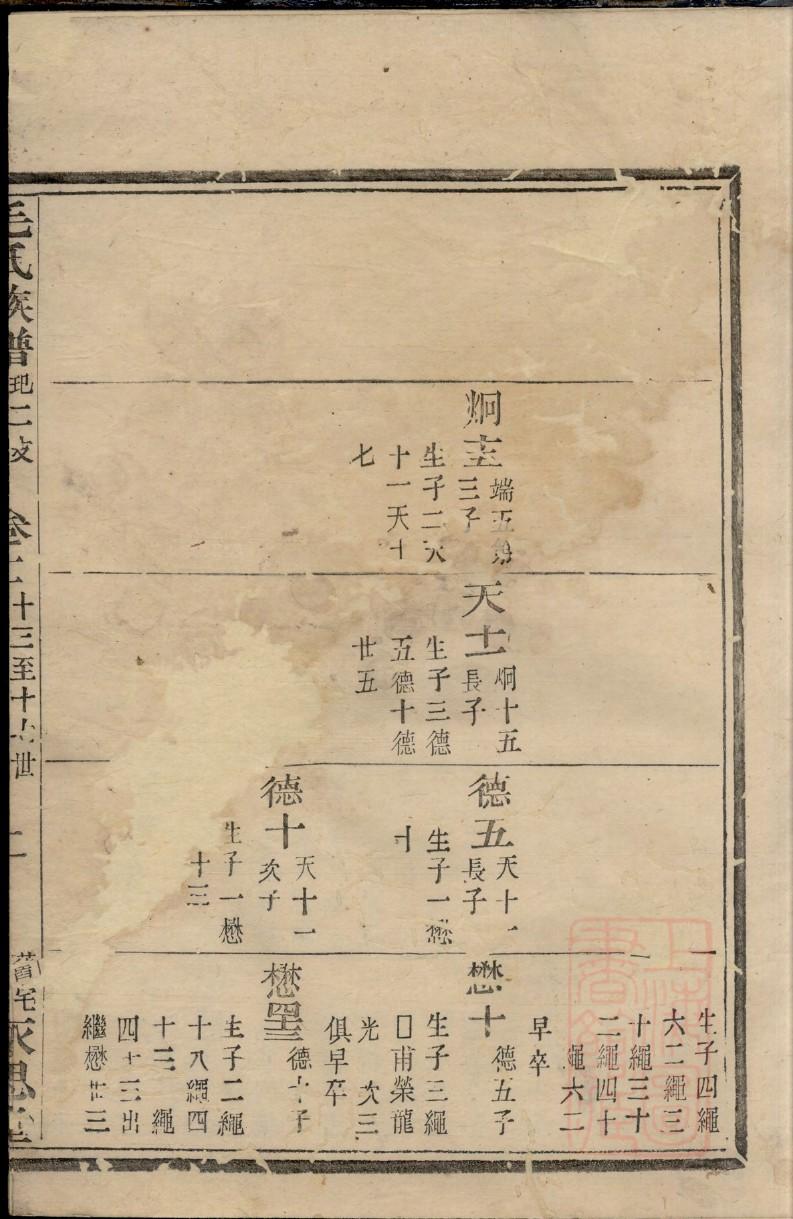 炯十五
端五第
三子
生子二天
十一天十
七
天十一
炯十五
長子
生子三德
五德十德
廿五
德五
天十一
長子
生子一懋
十
德十
天十一
次子
生子一懋
十三
生子四繩
六二繩三
十繩三十
二繩四十
繩六二
早卒
懋十
德五子
生子三繩
□甫榮龍
光 次三
俱早卒
德十子
生子二繩
十八繩四
十三 繩
四十三出
繼懋廿三
毛氏族譜
卷二 十三至十七世
二